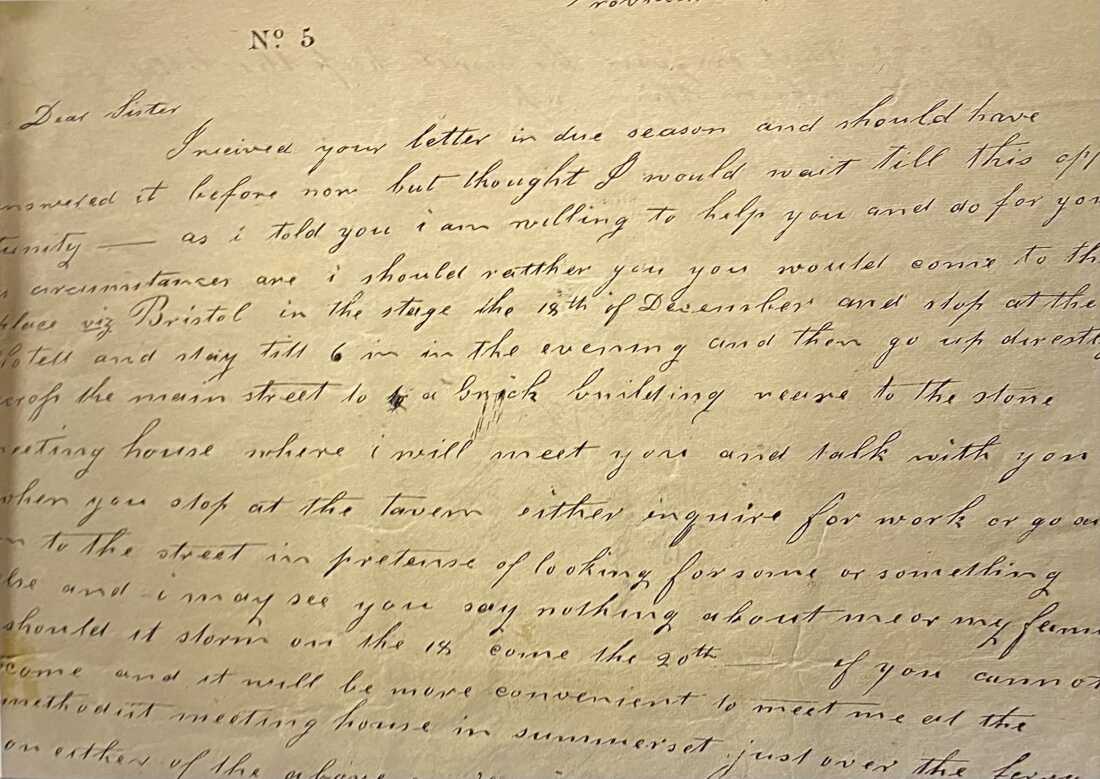 No 5
Dear Sister
I reeived your letter in due season and should have
nswered it before now but thought I would wait till this opp
tunity — as i told you i am willing to help you and do for you
circumstances are i should ratther you you would come to th
place viz Bristol in the stage the 18th of December and stop at the
Hotell and stay till 6 in in the evening and then go up directly
cross the main street to a brick building neare to the stone
meeting house where i will meet you and talk with you
when you stop at the tavern either inquire for work or go ou
n to the street in pretense of looking for some or something
else and i may see you say nothing about me or my fam
should it storm on the 18 come the 20th — If you cannot
come and it will be more convenient to meet me at the
methodist meeting house in summerset just over the ferr
on either of the above